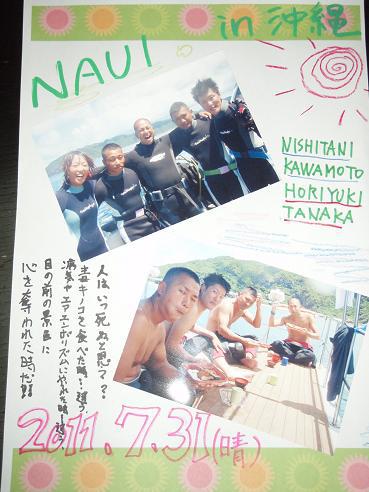 NAUI
in 沖縄
NISHITANI
KAWAMOTO
HORIYUKI
TANAKA
人はいつ死ぬと思う?
毒キノコを食べた時…違う
病気やエアエンボリズムにやられた時…違う
目の前の景色に
心を奪われた時だ!!
2011.7.31(晴)